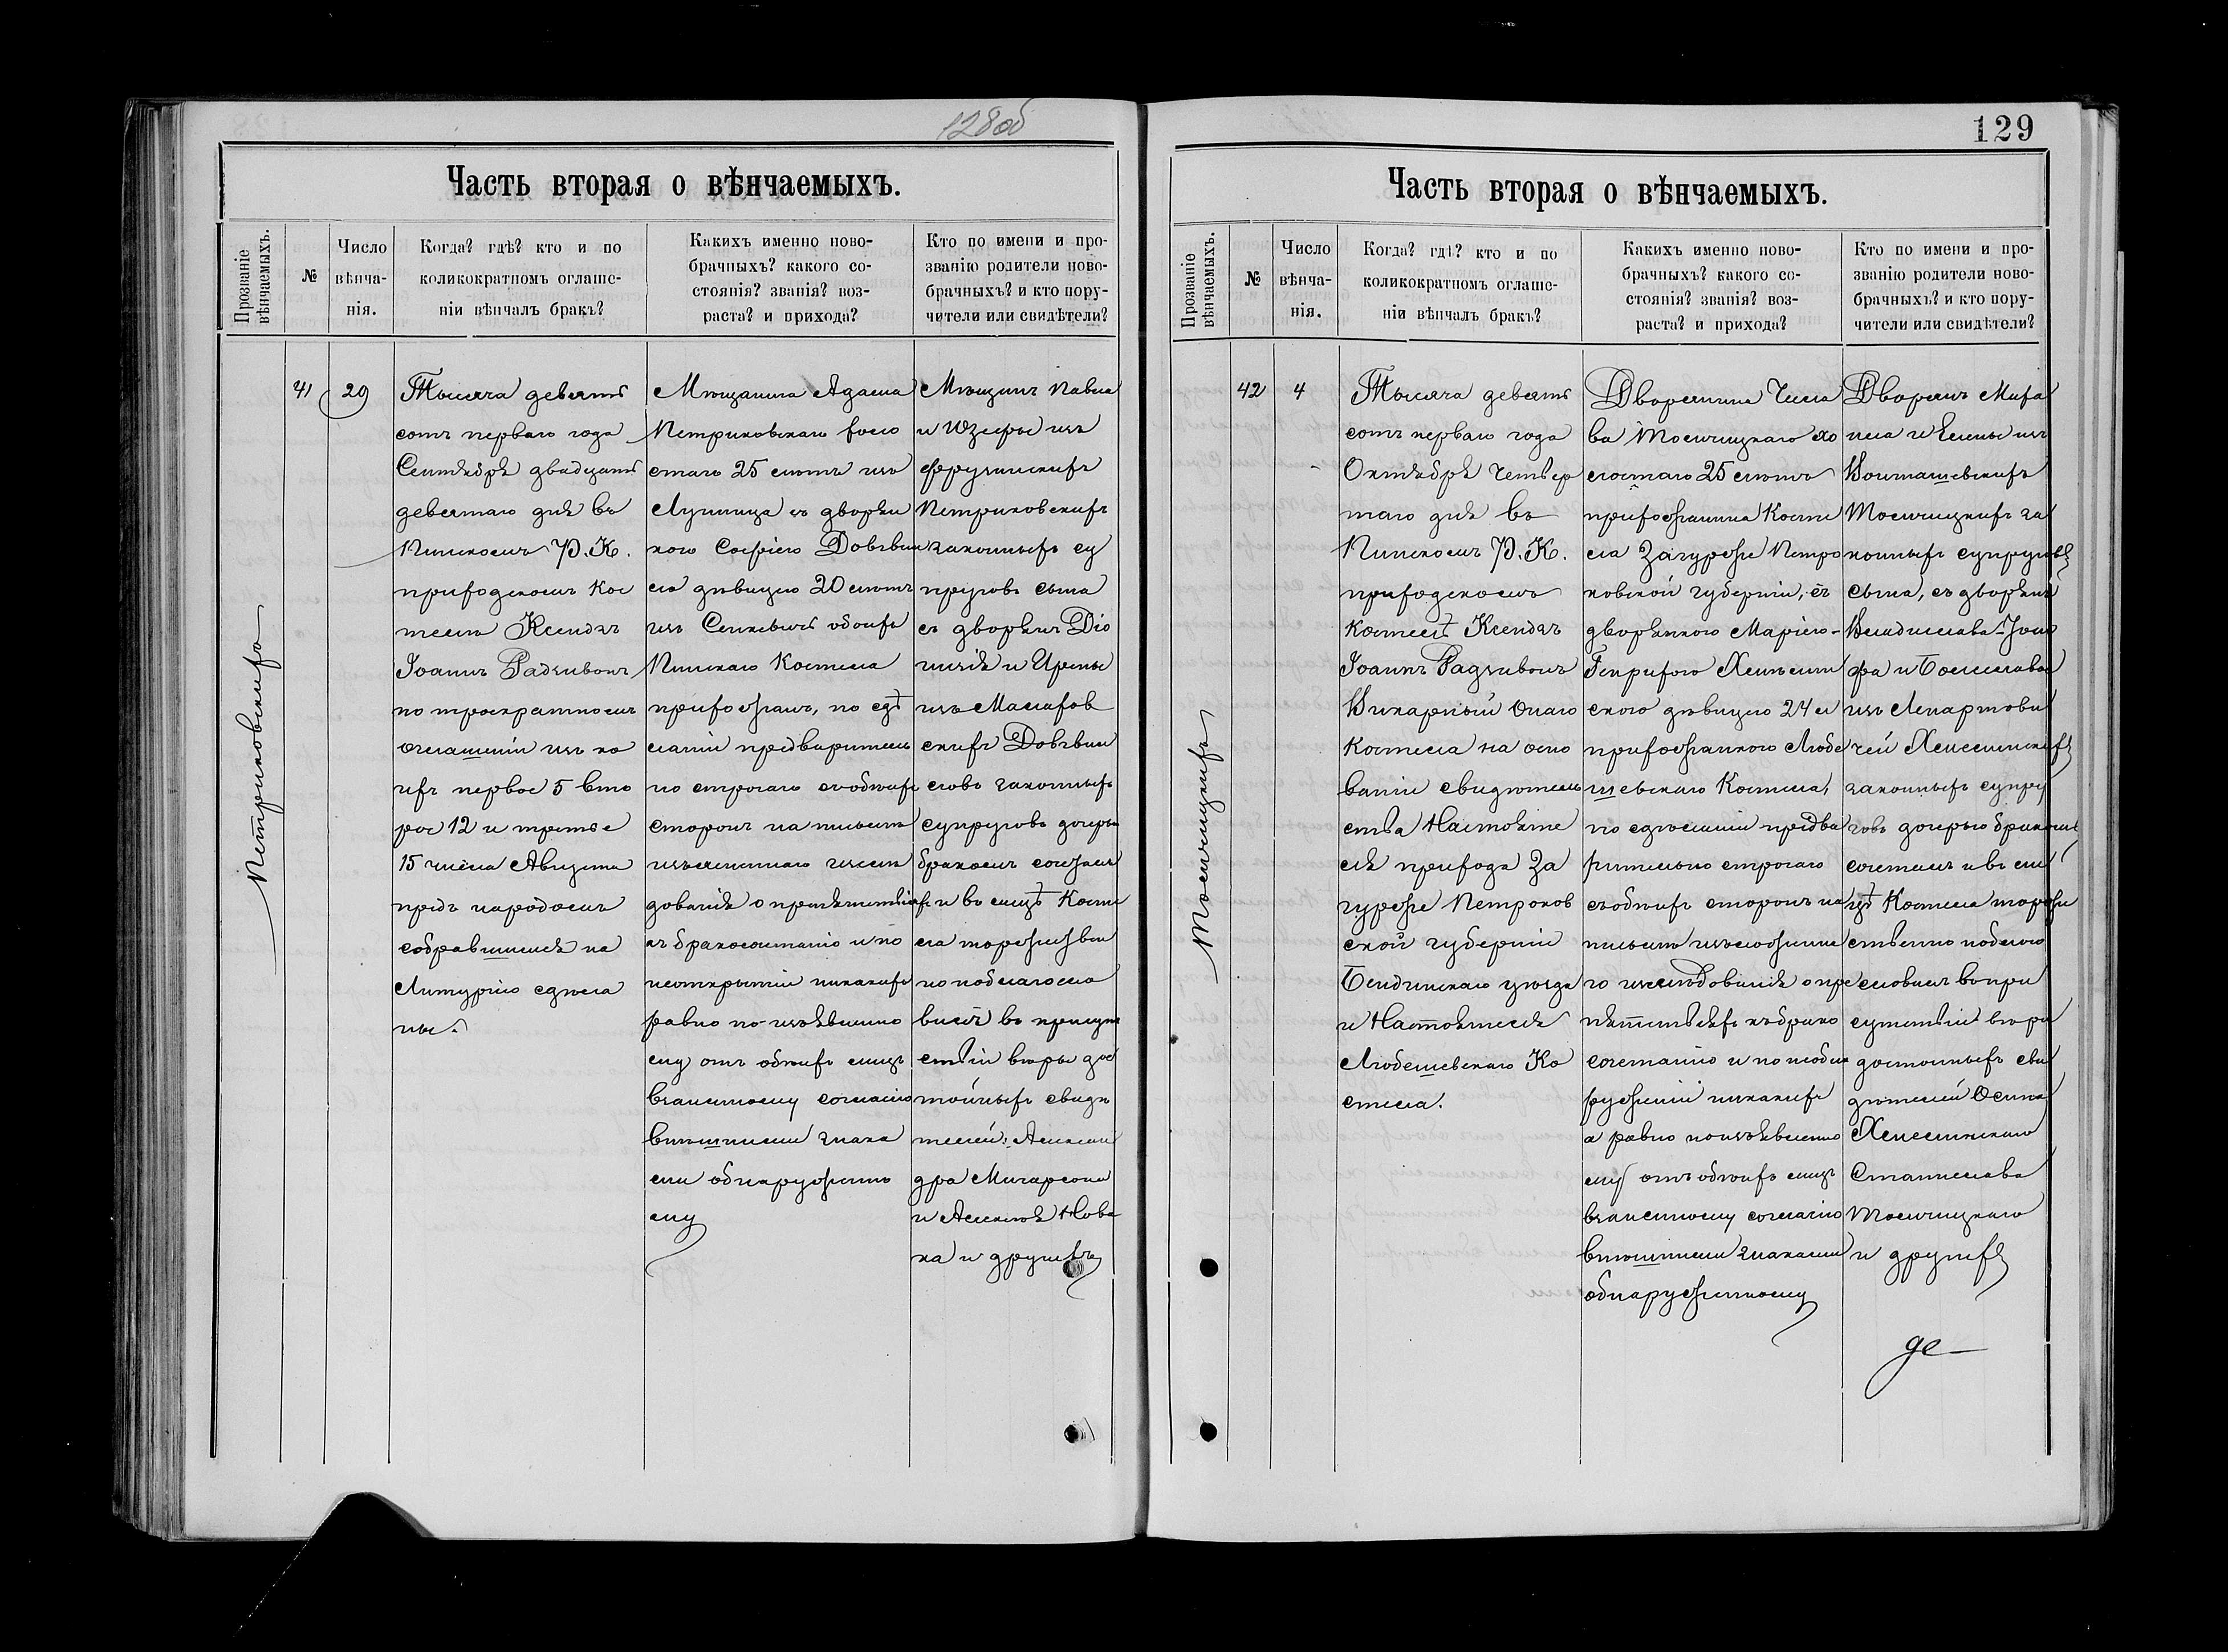 128об
Часть вторая о вѣнчаемыхъ.
Прозваніе вѣнчаемыхъ.
№
Число вѣнча-
нія.
Когда? гдѣ? кто и по
коликократномъ оглаше-
ніи вѣнчалъ бракъ?
Какихъ именно ново-
брачныхъ? какого со-
стоянія? званія? воз-
раста? и прихода?
Кто по имени и про-
званію родители ново-
брачныхъ? и кто пору-
чители или свидѣтели?
Петриковскихъ
41
29
Тысяча девять
сотъ перваго года
Сентября двадцать
девятаго дня въ
Пинскомъ Р. К.
приходскомъ Кос
телѣ Ксендзъ
Іоаннъ Радзивонъ
по троекратномъ
оглашеніи изъ ко
ихъ первое 5 вто
рое 12 и третье
15 числа Августа
предъ народомъ
собравшимся на
Литургію сдѣла
ны.
Мѣщанина Адама
Петриковскаго холо
стаго 25 лѣтъ изъ
Лунинца съ дворян
кою Софіею Довгвил
ло дѣвицею 20 лѣтъ
изъ Сенкевичъ обоихъ
Пинскаго Костела
прихожанъ, по сдѣ
ланіи предваритель
но строгаго съ обѣихъ
сторонъ на письмѣ
изъясненнаго изслѣ
дованія о препятствіяхъ
къ бракосочетанію и по
неоткрытіи никакихъ
равно по изъявлено
му отъ обѣихъ лицъ
взаимному согласію
внѣшними знака
ми обнаруженно
му
Мѣщанъ Павла
и Юзефы изъ
Фрузинскихъ
Петриковскихъ
законныхъ су
пруговъ сына
съ дворянъ Діо
низія и Ирены
изъ Малахов
скихъ Довгвил
ловъ законныхъ
супруговъ дочерью
бракомъ сочеталъ
и въ лицѣ Косте
ла торжествен
но поблагосло
вилъ въ присут
ствіи вѣры дос
тойныхъ свидѣ
телей: Алексан
дра
и Алексѣя Нова
ка и другихъ
129
Часть вторая о вѣнчаемыхъ.
Прозваніе вѣнчаемыхъ.
№
Число вѣнча-
нія.
Когда? гдѣ? кто и по
коликократномъ оглаше-
ніи вѣнчалъ бракъ?
Какихъ именно ново-
брачныхъ? какого со-
стоянія? званія? воз-
раста? и прихода?
Кто по имени и про-
званію родители ново-
брачныхъ? и кто пору-
чители или свидѣтели?
Толчицкихъ
42
4
Тысяча девять
сотъ перваго года
Октября четвер
таго дня въ
Пинскомъ Р. К.
приходскомъ
Костелѣ Ксендзъ
Іоаннъ Радзивонъ
Викарный онаго
Костела на осно
ваніи свидѣтель
ства Настояте
ля прихода За
гурже Петроков
ской губерніи
Бендинскаго уѣзда
и Настоятеля
Любешевскаго Ко
стела.
Дворянина Чесла
ва Толчицкаго хо
лостаго 25 лѣтъ
прихожанина Косте
ла Загурже Петро
ковской губерніи, съ
дворянкою Маріею-
Генрихою Хелмин
скою дѣвицею 24 л
прихожанкою Любе
шевскаго Костела,
по сдѣланіи предва
рительно строгаго
съ обѣихъ сторонъ на
письмѣ изложенна
го изслѣдованія о пре
пятствіяхъ къ брако
сочетанію и по необна
руженіи никакихъ
а равно по изъявлено
му отъ обѣихъ лицъ
взаимному согласію
внѣшними знаками
обнаруженному
Дворянъ Миха
ила и Елены изъ
Войташевскихъ
Толчицкихъ за
конныхъ супруговъ
сына, съ дворянъ
Владислава-Іоси
фа и Болеславы
изъ Ленартови
чей Хелминскихъ
законныхъ супру
говъ дочерью бракомъ
сочеталъ и въ ли
цѣ Костела торже
ственно поблаго
словилъ въ при
сутствіи вѣры
достойныхъ сви
дѣтелей Осипа
Хелминскаго
Станислава
Толчицкаго
и другихъ